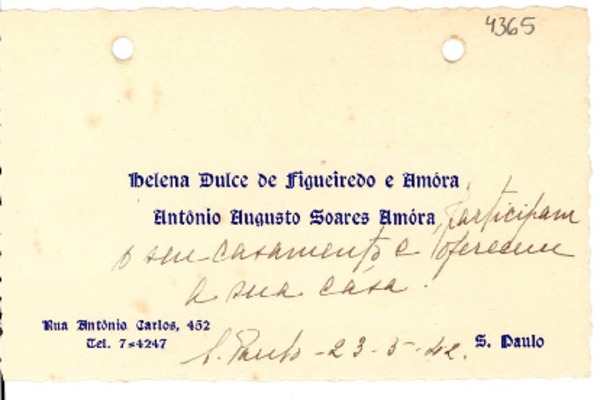 4365
Helena Dulce de Figueiredo e Amóra
Antônio Augusto Soares Amóra, participam
o seu casamento e oferecem
a sua casa.
Rua Antônio Carlos, 452
Tel. 7=4247
S. Paulo - 23-5-42.
S. Paulo